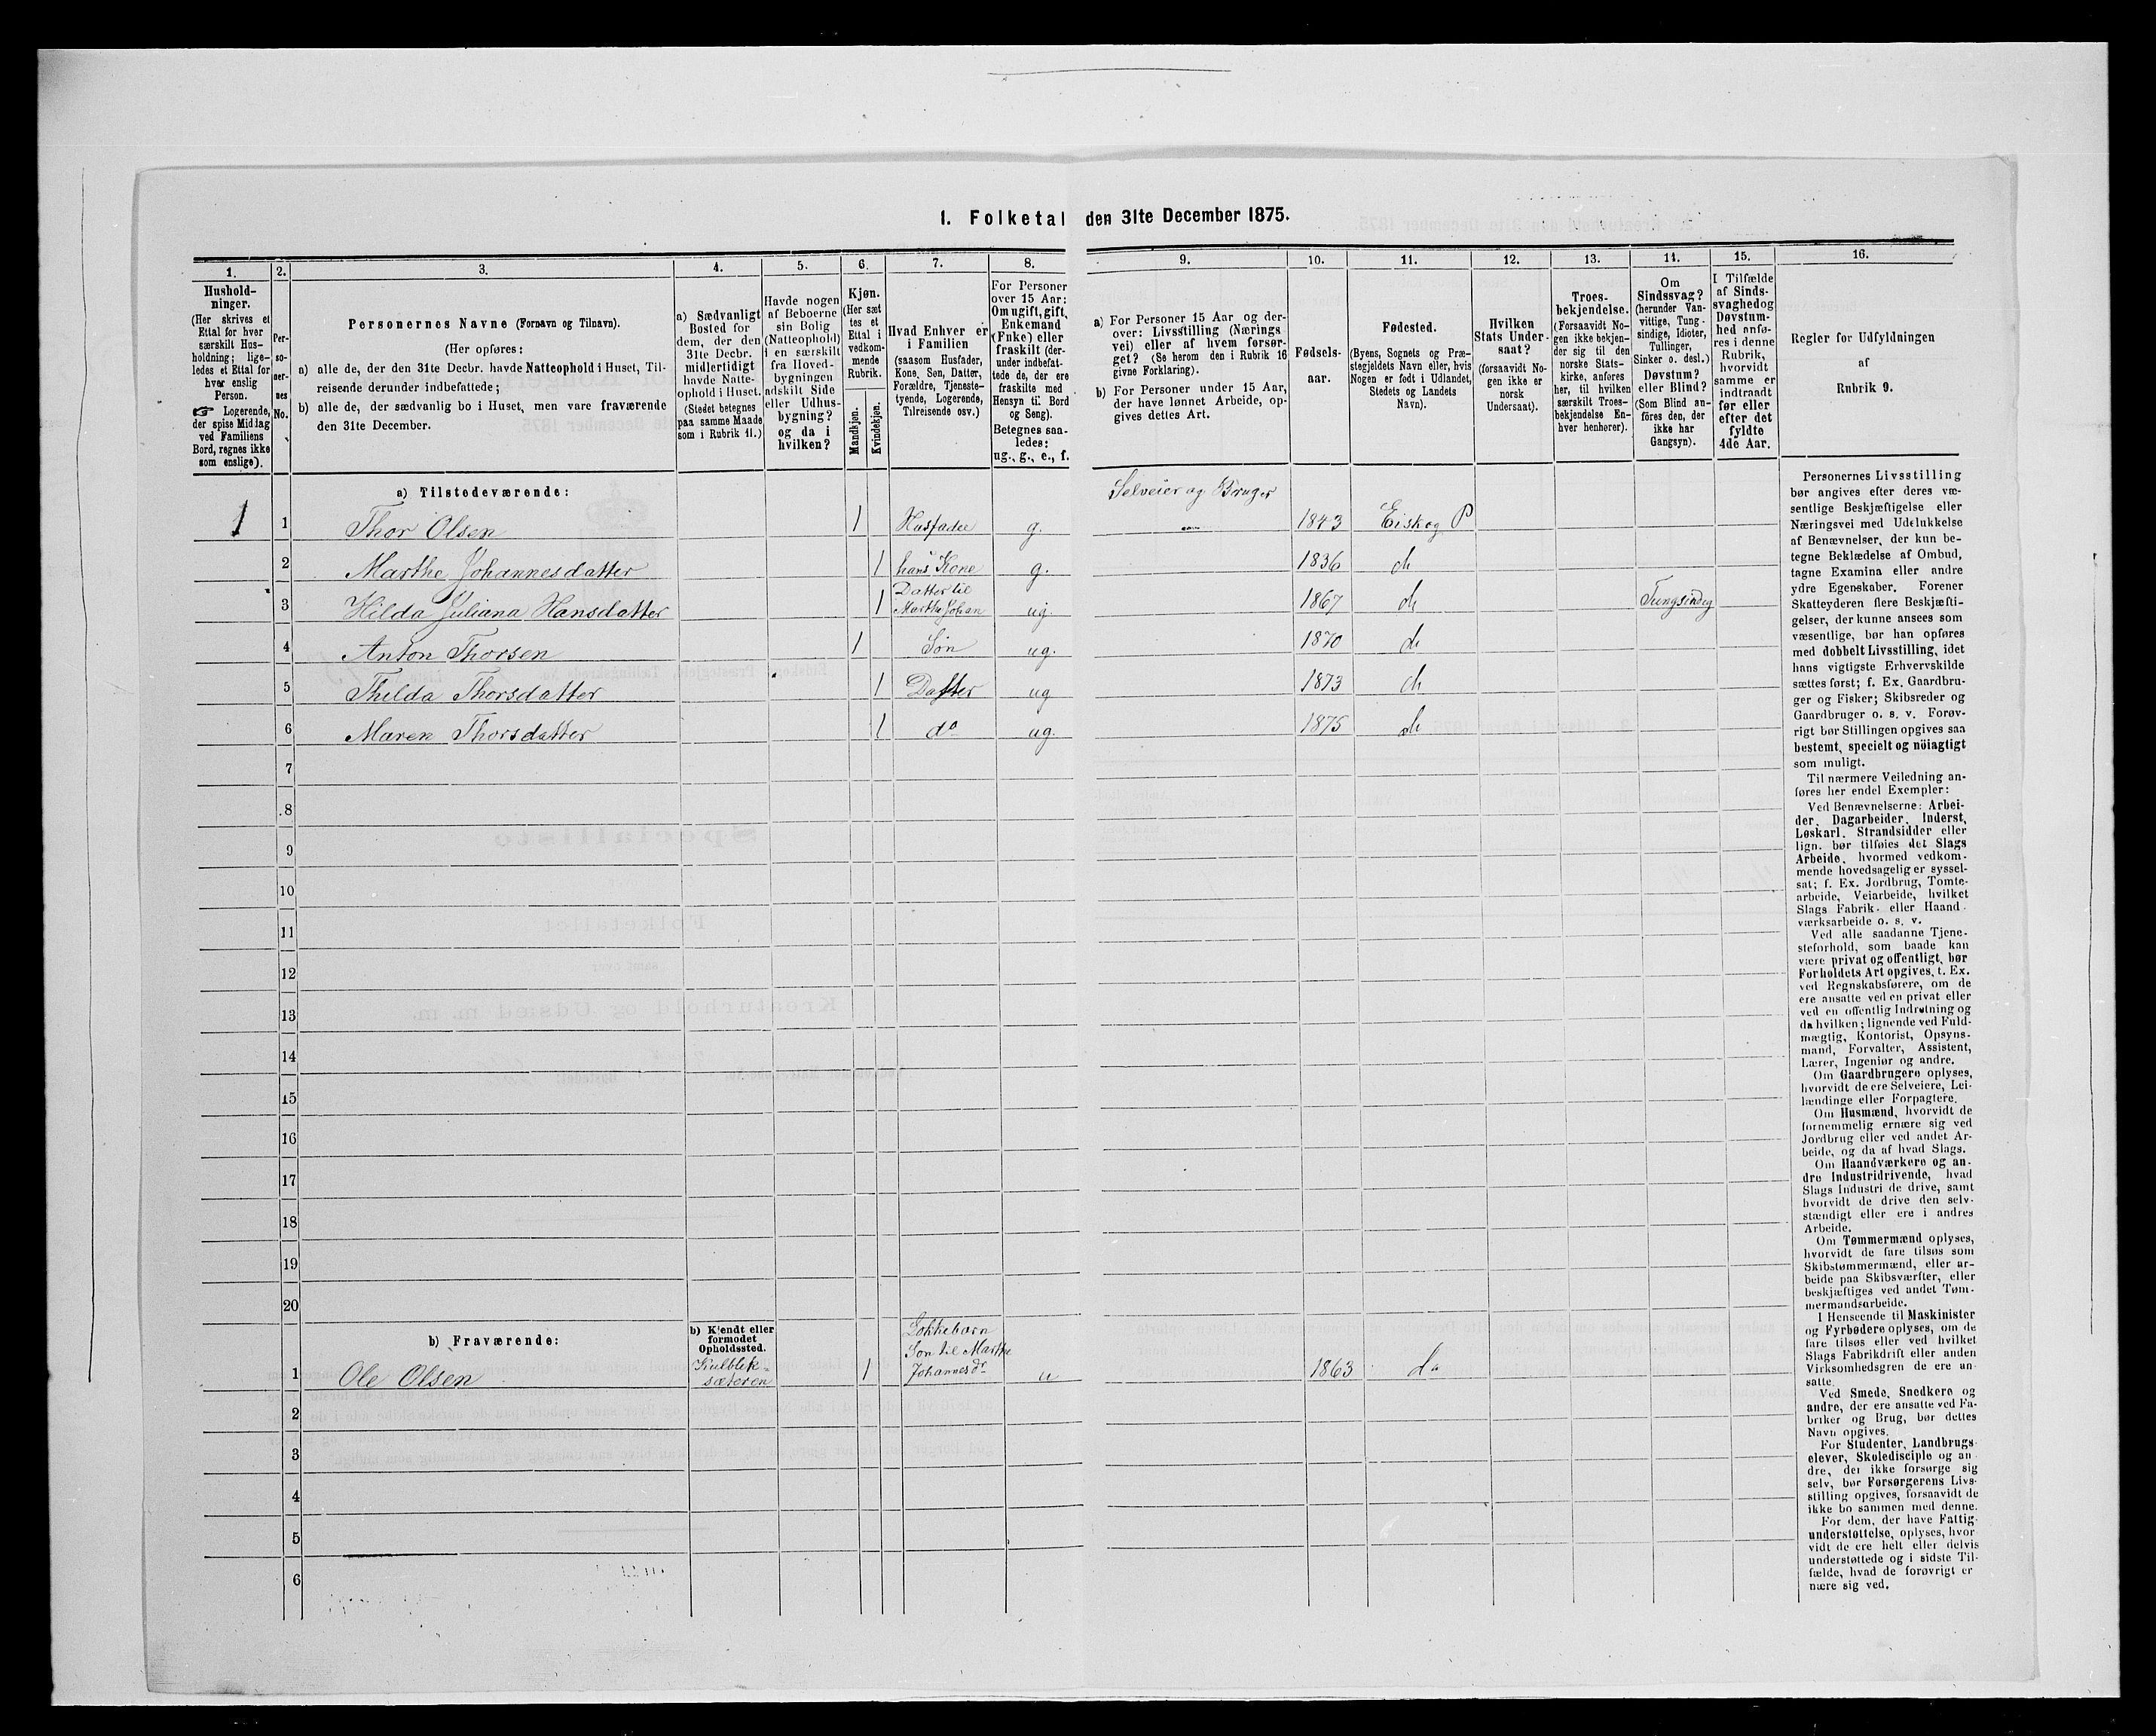 1. Folketal den 31te December 1875.
1.
Hushold-
ninger.
(Her skrives et
Ettal for hver
særskilt Hus-
holdning; lige-
ledes et Ettal for
hver enslig
Person.
☞ Logerende,
der spise Middag
ved Familiens
Bord, regnes ikke
som enslige).
2.
Per-
so-
ner-
nes
No.
3.
Personernes Navne (Fornavn og Tilnavn).
(Her opføres:
a) alle de, der den 31te Decbr. havde Natteophold i Huset, Til-
reisende derunder indbefattede;
b) alle de, der sædvanlig bo i Huset, men vare fraværende
den 31te December.
4.
a) Sædvanligt
Bosted for
dem, der den
31te Decbr.
midlertidigt
havde Natte-
ophold i Huset.
(Stedet betegnes
paa samme Maade
som i Rubrik 11.)
5.
Havde nogen
af Beboerne
sin Bolig
(Natteophold)
i en særskilt
fra Hoved-
bygningen
adskilt Side
eller Udhus-
bygning?
og da i
hvilken?
6.
Kjøn.
(Her sæt
tes et
Ettal i
vedkom-
mende
Rubrik.
Mandkjøn.
Kvindekjøn.
7.
Hvad Enhver er
i Familien
(saasom Husfader,
Kone, Søn, Datter,
Forældre, Tjeneste-
tyende, Logerende,
Tilreisende osv.)
8.
For Personer
over 15 Aar:
Om ugift, gift,
Enkemand
(Enke) eller
fraskilt (der-
under indbefat-
tede de, der ere
fraskilte med
Hensyn til Bord
og Seng).
Betegnes saa-
ledes:
ug., g., e., f.
9.
a) For Personer 15 Aar og der-
over: Livsstilling (Nærings
vei) eller af hvem forsør-
get? (Se herom den i Rubrik 16
givne Forklaring).
b) For Personer under 15 Aar,
der have lønnet Arbeide, op-
gives dettes Art.
10.
Fødsels-
aar.
11.
Fødested.
(Byens, Sognets og Præ-
stegjeldets Navn eller, hvis
Nogen er født i Udlandet,
Stedets og Landets
Navn).
12.
Hvilken
Stats Under-
saat?
(forsaavidt No-
gen ikke er
norsk
Undersaat).
13.
Troes-
bekjendelse.
(Forsaavidt No-
gen ikke bekjen-
der sig til den
norske Stats-
kirke, anføres
her, til hvilken
særskilt Troes-
bekjendelse En-
hver henhører).
14.
Om
Sindssvag?
(herunder Van-
vittige, Tung-
sindige, Idioter,
Tullinger,
Sinker o. desl.)
Døvstum?
eller Blind?
(Som Blind an-
føres den, der
ikke har
Gangsyn).
15.
I Tilfælde
af Sinds-
svaghed og
Døvstum-
hed anfø-
res i denne
Rubrik,
hvorvidt
samme er
indtraadt
før eller
efter det
fyldte
4de Aar.
16.
Regler for Udfyldningen
af
Rubrik 9.
a) Tilstedeværende:
Selveier og Bruger
1 1 Thor Olsen 1 Husfader g. 1843 Eiskog P
2 Marthe Johannesdatter 1 hans Kone g. 1836 do
Datter til
3 Hilda Juliana Hansdatter 1 Marthe Johan ug. 1867 do Tungsindig
4 Anton Thorsen 1 Søn ug. 1870 do
5 Thilda Thorsdatter 1 Datter ug 1873 do
6 Maren Thorsdatter 1 do ug. 1875 do
7
8
9
10
11
12
13
14
15
16
17
18
19
20
b) Fraværende:
b) Kjendt eller
formodet
Opholdssted.
Lokkebarn
Søn til Marthe
Johannesdr
sæteren
1 Ole Olsen 1 u 1863 do
2
3
4
5
6
Personernes Livsstilling
bør angives efter deres væ-
sentlige Beskjæftigelse eller
Næringsvei med Udelukkelse
af Benævnelser, der kun be-
tegne Beklædelse af Ombud,
tagne Examina eller andre
ydre Egenskaber. Forener
Skatteyderen flere Beskjæfti-
gelser, der kunne ansees som
væsentlige, bør han opføres
med dobbelt Livsstilling, idet
hans vigtigste Erhvervskilde
sættes først; f. Ex. Gaardbru-
ger og Fisker; Skibsreder og
Gaardbruger o. s. v. Forøv-
rigt bør Stillingen opgives saa
bestemt, specielt og nöiagtigt
som muligt.
Til nærmere Veiledning an-
føres her endel Exempler:
Ved Benævnelserne: Arbei-
der, Dagarbeider, Inderst,
Løskarl, Strandsidder eller
lign. bør tilføies det Slags
Arbeide, hvormed vedkom-
mende hovedsagelig er syssel-
sat; f. Ex. Jordbrug, Tomte-
arbeide, Veiarbeide, hvilket
Slags Fabrik- eller Haand-
værksarbeide o. s. v.
Ved alle saadanne Tjene-
steforhold, som baade kan
være privat og offentligt, bør
Forholdets Art opgives, t. Ex.
ved Regnskabsførere, om de
ere ansatte ved en privat eller
ved en offentlig Indretning og
da hvilken; lignende ved Fuld-
mægtig, Kontorist, Opsyns-
mand, Forvalter, Assistent,
Lærer, Ingeniør og andre.
Om Gaardbrugere oplyses,
hvorvidt de ere Selveiere, Lei-
lændinge eller Forpagtere.
Om Husmænd, hvorvidt de
fornemmelig ernære sig ved
Jordbrug eller ved andet Ar-
beide, og da af hvad Slags.
Om Haandværkere og an-
dre Industridrivende, hvad
Slags Industri de drive, samt
hvorvidt de drive den selv-
stændigt eller ere i andres
Arbeide.
Om Tømmermænd oplyses,
hvorvidt de fare tilsøs som
Skibstømmermænd, eller ar-
beide paa Skibsværfter, eller
beskjæftiges ved andet Tøm-
mermandsarbeide.
I Henseende til Maskinister
og Fyrbødere oplyses, om de
fare tilsøs eller ved hvilket
Slags Fabrikdrift eller anden
Virksomhedsgren de ere an-
satte.
Ved Smede, Snedkere og
andre, der ere ansatte ved Fa-
briker og Brug, bør dettes
Navn opgives.
For Studenter, Landbrugs-
elever, Skoledisciple og an-
dre, der ikke forsørge sig
selv, bør Forsørgerens Livs-
stilling opgives, forsaavidt de
ikke bo sammen med denne.
For dem, der have Fattig-
understøttelse, oplyses, hvor-
vidt de ere helt eller delvis
understøttede og i sidste Til-
fælde, hvad de forøvrigt er
nære sig ved.